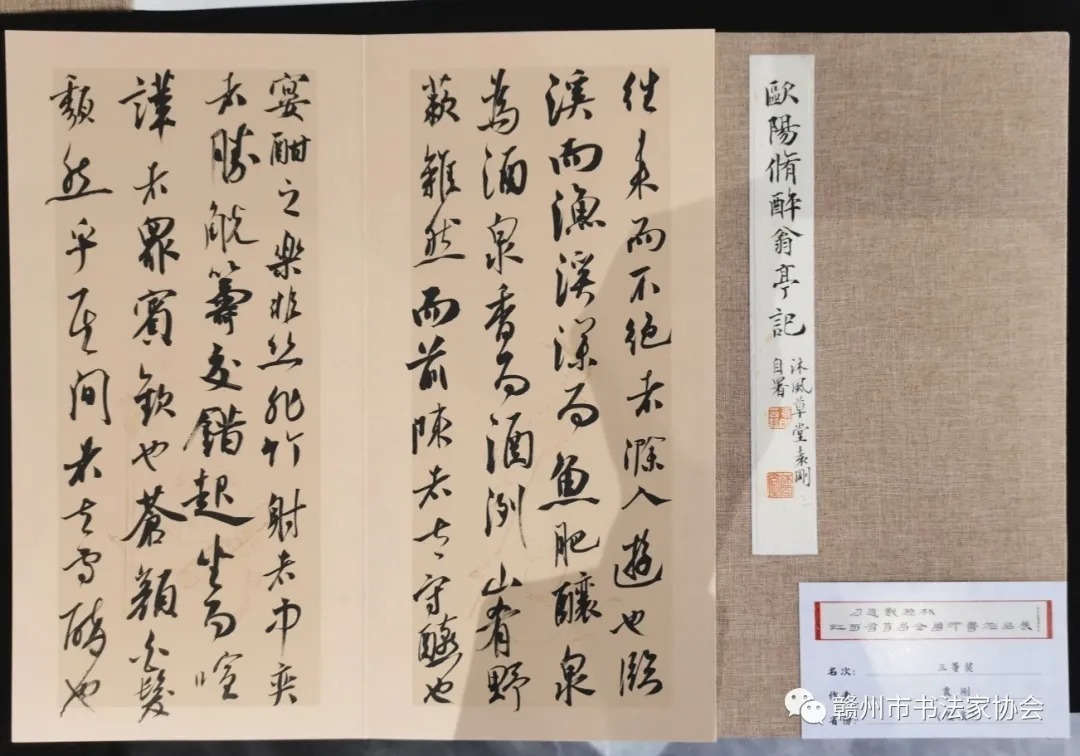 歐陽脩醉翁亭記
沐風草堂袁剛
自署
往来而不絕者滁人遊也臨
溪而漁溪深而魚肥釀泉
為酒泉香而酒洌山肴野
蔌雜然而前陳者太守醼也
宴酣之樂非丝非竹射者中奕
者勝觥籌交錯起坐而喧
譁者眾賓歡也蒼顏白髮
頹然乎其間者太守醉也
名次: 三等奖
袁刚
赣州市书法家协会